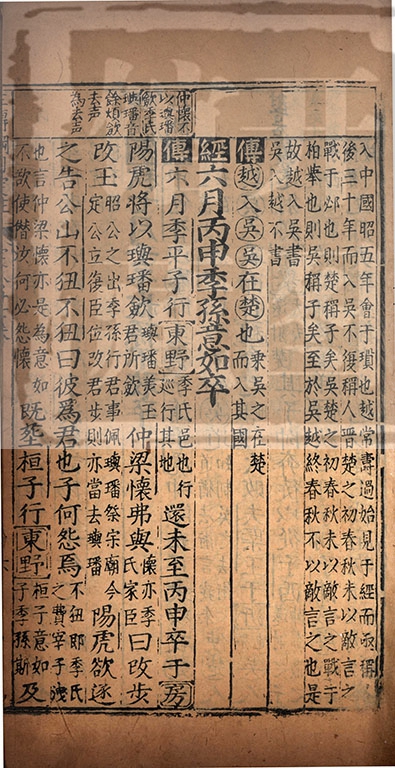 入中國昭五年會于瑣也越常壽過始見于經而亟稱
後三十年而入吳不復稱人晋楚之初春秋未以敵言之
戰于必也則楚稱子矣吳楚之初春秋未以敵言之戰于
柏舉也則吳稱子矣至於吳越終春秋不以敵言之也是
故越入吳書
吳入越不書
傳越入吳吳在楚也乘吳之在楚而入其國
經六月丙申季孫意如卒
傳六月季平子行東野季氏邑也行巡行其地還未至丙申卒于房
仲懷不
以璵璠
斂季氏
璵璠音
餘煩斂
去声
為去声
陽虎將以璵璠斂璵璠美玉君所仲梁懷弗與懷亦季氏家臣曰改步
改玉昭公之出季孫行君事佩璵璠祭宗廟今定公立復臣位改君步則亦當去璵璠陽虎欲逐
之告公山不狃不狃曰彼為君也子何怨焉不狃即季氏之費宰子洩
也言仲梁懷亦是為意如不欲使僣汝何必怨懷既葬桓子行東野桓子意如子季孫斯及